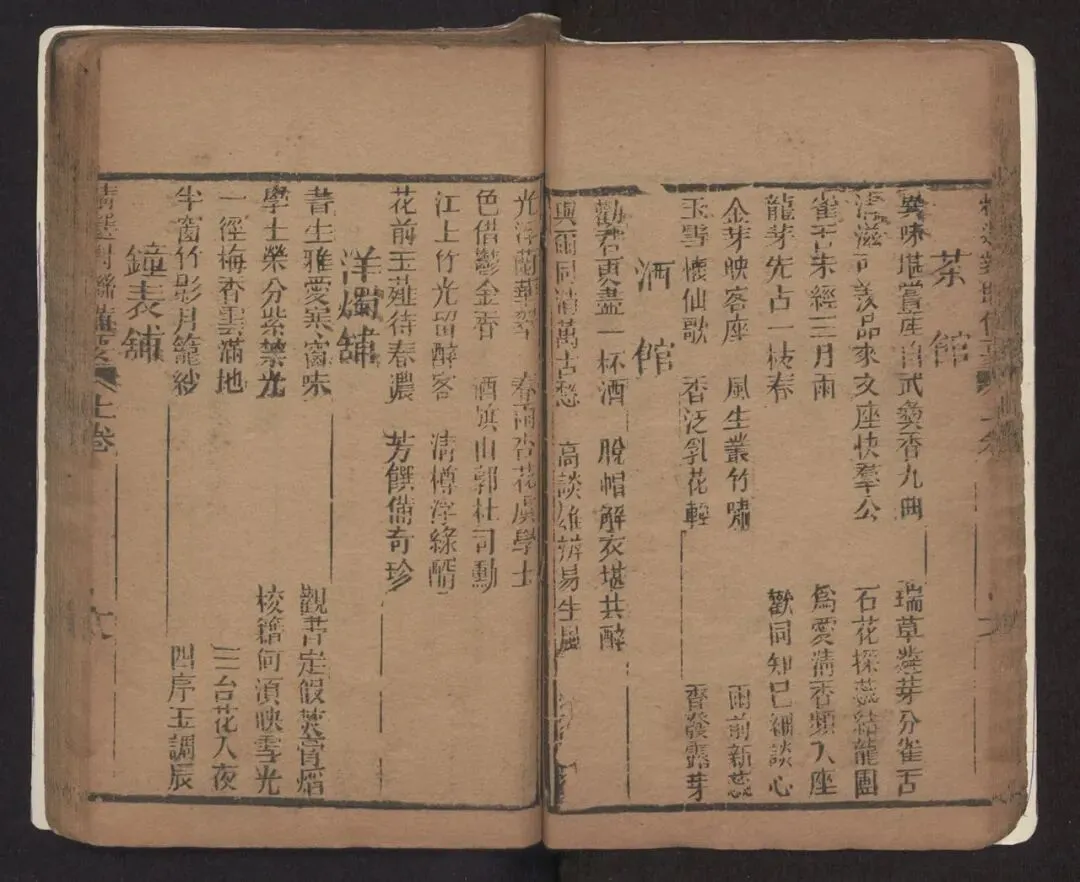 茶館
異味堪嘗座自武彝香九曲 瑞草叢芽分雀舌
清滋可羨品來文座快羣公 石花探蕊結龍團
雀舌未經三月雨 為愛清香頻入座
龍芽先占一枝春 歡同知己細談心
金芽映客座 風生叢竹嘯 雨前新蕊
玉雪懷仙歌 香泛乳花輕 齊發露芽
酒館
勸君更盡一杯酒 脫帽解衣堪共醉
與爾同消萬古愁 高談雄辨易生風
光浮 翠 春雨杏花虞學士
色借鬱金香 酒旗山郭杜司勳
江上竹光留醉客 清樽浮綠醑
花前玉薤待春濃 芳饌備奇珍
洋燭舖
書生雅愛寒窗味 觀書定假
學士榮分紫禁光 校籍何須映雪光
一徑梅香雲滿地 三台花入夜
半窗竹影月籠紗 四序玉調辰
鐘表舖
上卷